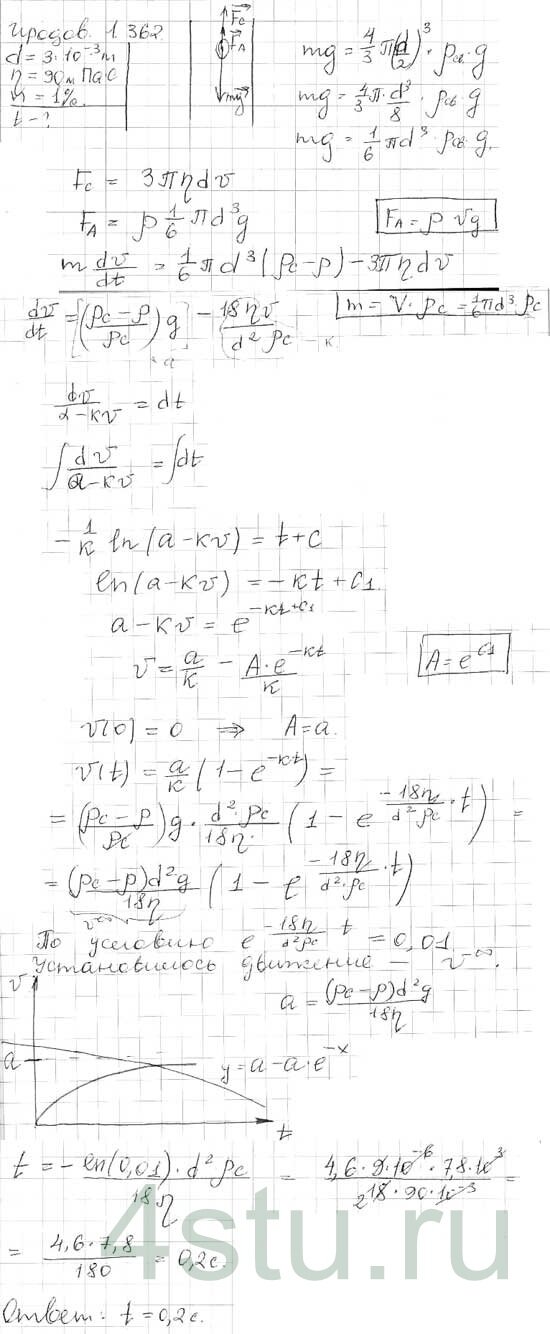 Иродов. 1.362
d = 3·10⁻³м
η = 90м Па·с
n = 1%.
t - ?
F⃗c
F⃗A
mg⃗
mg = 4/3 π(d/2)³ · ρсв · g
mg = 4/3 π · d³/8 · ρсв · g
mg = 1/6 πd³ · ρсв g.
Fc = 3πηdv
FA = ρ 1/6 πd³g
FA = ρ Vg
m dv/dt = 1/6 πd³(ρc - ρ) - 3πηdv
dv/dt = [(ρc - ρ)/ρc)g] - (18ηv/d²ρc - к
a
m = V·ρc = 1/6πd³ρc
dv/a - кv = dt
∫ dv/a - кv = ∫dt
- 1/к ln(a - кv) = t + c
ln(a - кv) = -кt + c₁.
a - кv = e^(-кt + c₁)
v = a/к - A·e^(-кt)/к
A = e^(c₁)
v(0) = 0 ⇒ A = a.
v(t) = a/к (1 - e^(-кt)) =
= (ρc - ρ/ρc)g · d²·ρc/18η · (1 - e^(-18η/d²ρc · t)) =
= (ρc - ρ)d²g/18η (1 - e^(-18η/d²·ρc · t))
v∞
По условию e^(-18η/d²ρc t) = 0,01
Установилось движение - v∞.
a = (ρc - ρ)d²g/18η
v
a
y = a - a·e^(-x)
t
t = -ln(0,01)·d²ρc/18η = 4,6·9·10⁻⁶·7,8·10³/18·90·10⁻³ =
2
= 4,6·7,8/180 = 0,2с.
Ответ: t = 0,2с.
4stu.ru